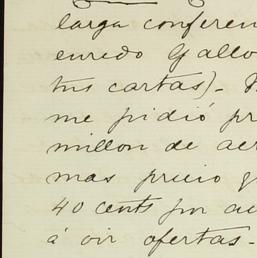 larga conferen
enredo Gallo
tus cartas)-
me pidió pr
millon de acr
mas precio q
40 cents por ac
á oir ofertas-